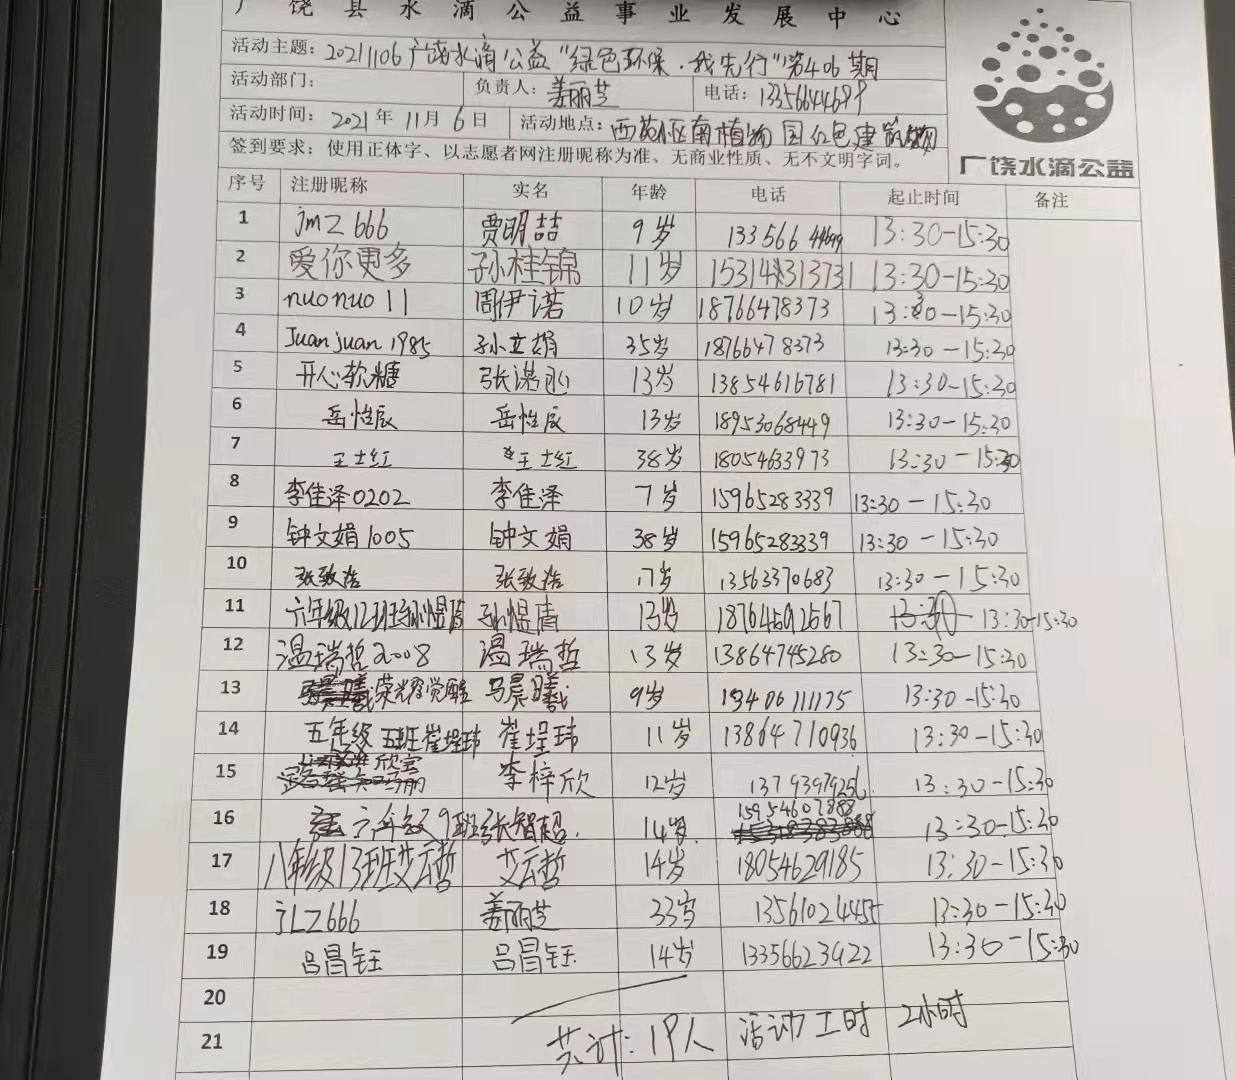 广饶县水滴公益事业发展中心
活动主题：20211106广饶水滴公益“绿色环保·我先行”第406期
活动部门： 负责人：姜丽芝 电话：13356644699
活动时间：2021年11月6日 活动地点：西苑小区南植物园红色建筑物
签到要求：使用正体字、以志愿者网注册昵称为准、无商业性质、无不文明字词。
广饶水滴公益
序号 注册昵称 实名 年龄 电话 起止时间 备注
1 jmz666 贾明喆 9岁 13356644699 13:30-15:30
2 爱你更多 孙桂锦 11岁 13:30-15:30
3 nuonuo11 周伊诺 10岁 18766478373 13:30-15:30
4 Juanjuan1985 孙立娟 35岁 18766478373 13:30-15:30
5 开心软糖 张诺 13岁 13854616781 13:30-15:30
6 岳怡辰 岳怡辰 13岁 18953068449 13:30-15:30
7 王士红 王士红 38岁 18054633973 13:30-15:30
8 李佳泽0202 李佳泽 7岁 15965283339 13:30-15:30
9 钟文娟1005 钟文娟 38岁 15965283339 13:30-15:30
10 张致浩 张致浩 17岁 13563370683 13:30-15:30
11 六年级12班孙煜清 孙煜清 13岁 18764592567 13:30-15:30
12 温瑞哲2008 温瑞哲 13岁 13864745280 13:30-15:30
13 荣耀觉醒 马晨曦 9岁 15406111175 13:30-15:30
14 五年级五班崔埕玮 崔埕玮 11岁 13864710936 13:30-15:30
15 欣宝 李梓欣 12岁 13793979256 13:30-15:30
16 六年级9班张智超 14岁 15954607888 13:30-15:30
17 八年级13班艾云哲 艾云哲 14岁 18054629185 13:30-15:30
18 jLZ666 姜丽芝 33岁 13561024455 13:30-15:30
19 吕昌钰 吕昌钰 14岁 13356623922 13:30-15:30
20
21 共计：19人 活动工时 2小时